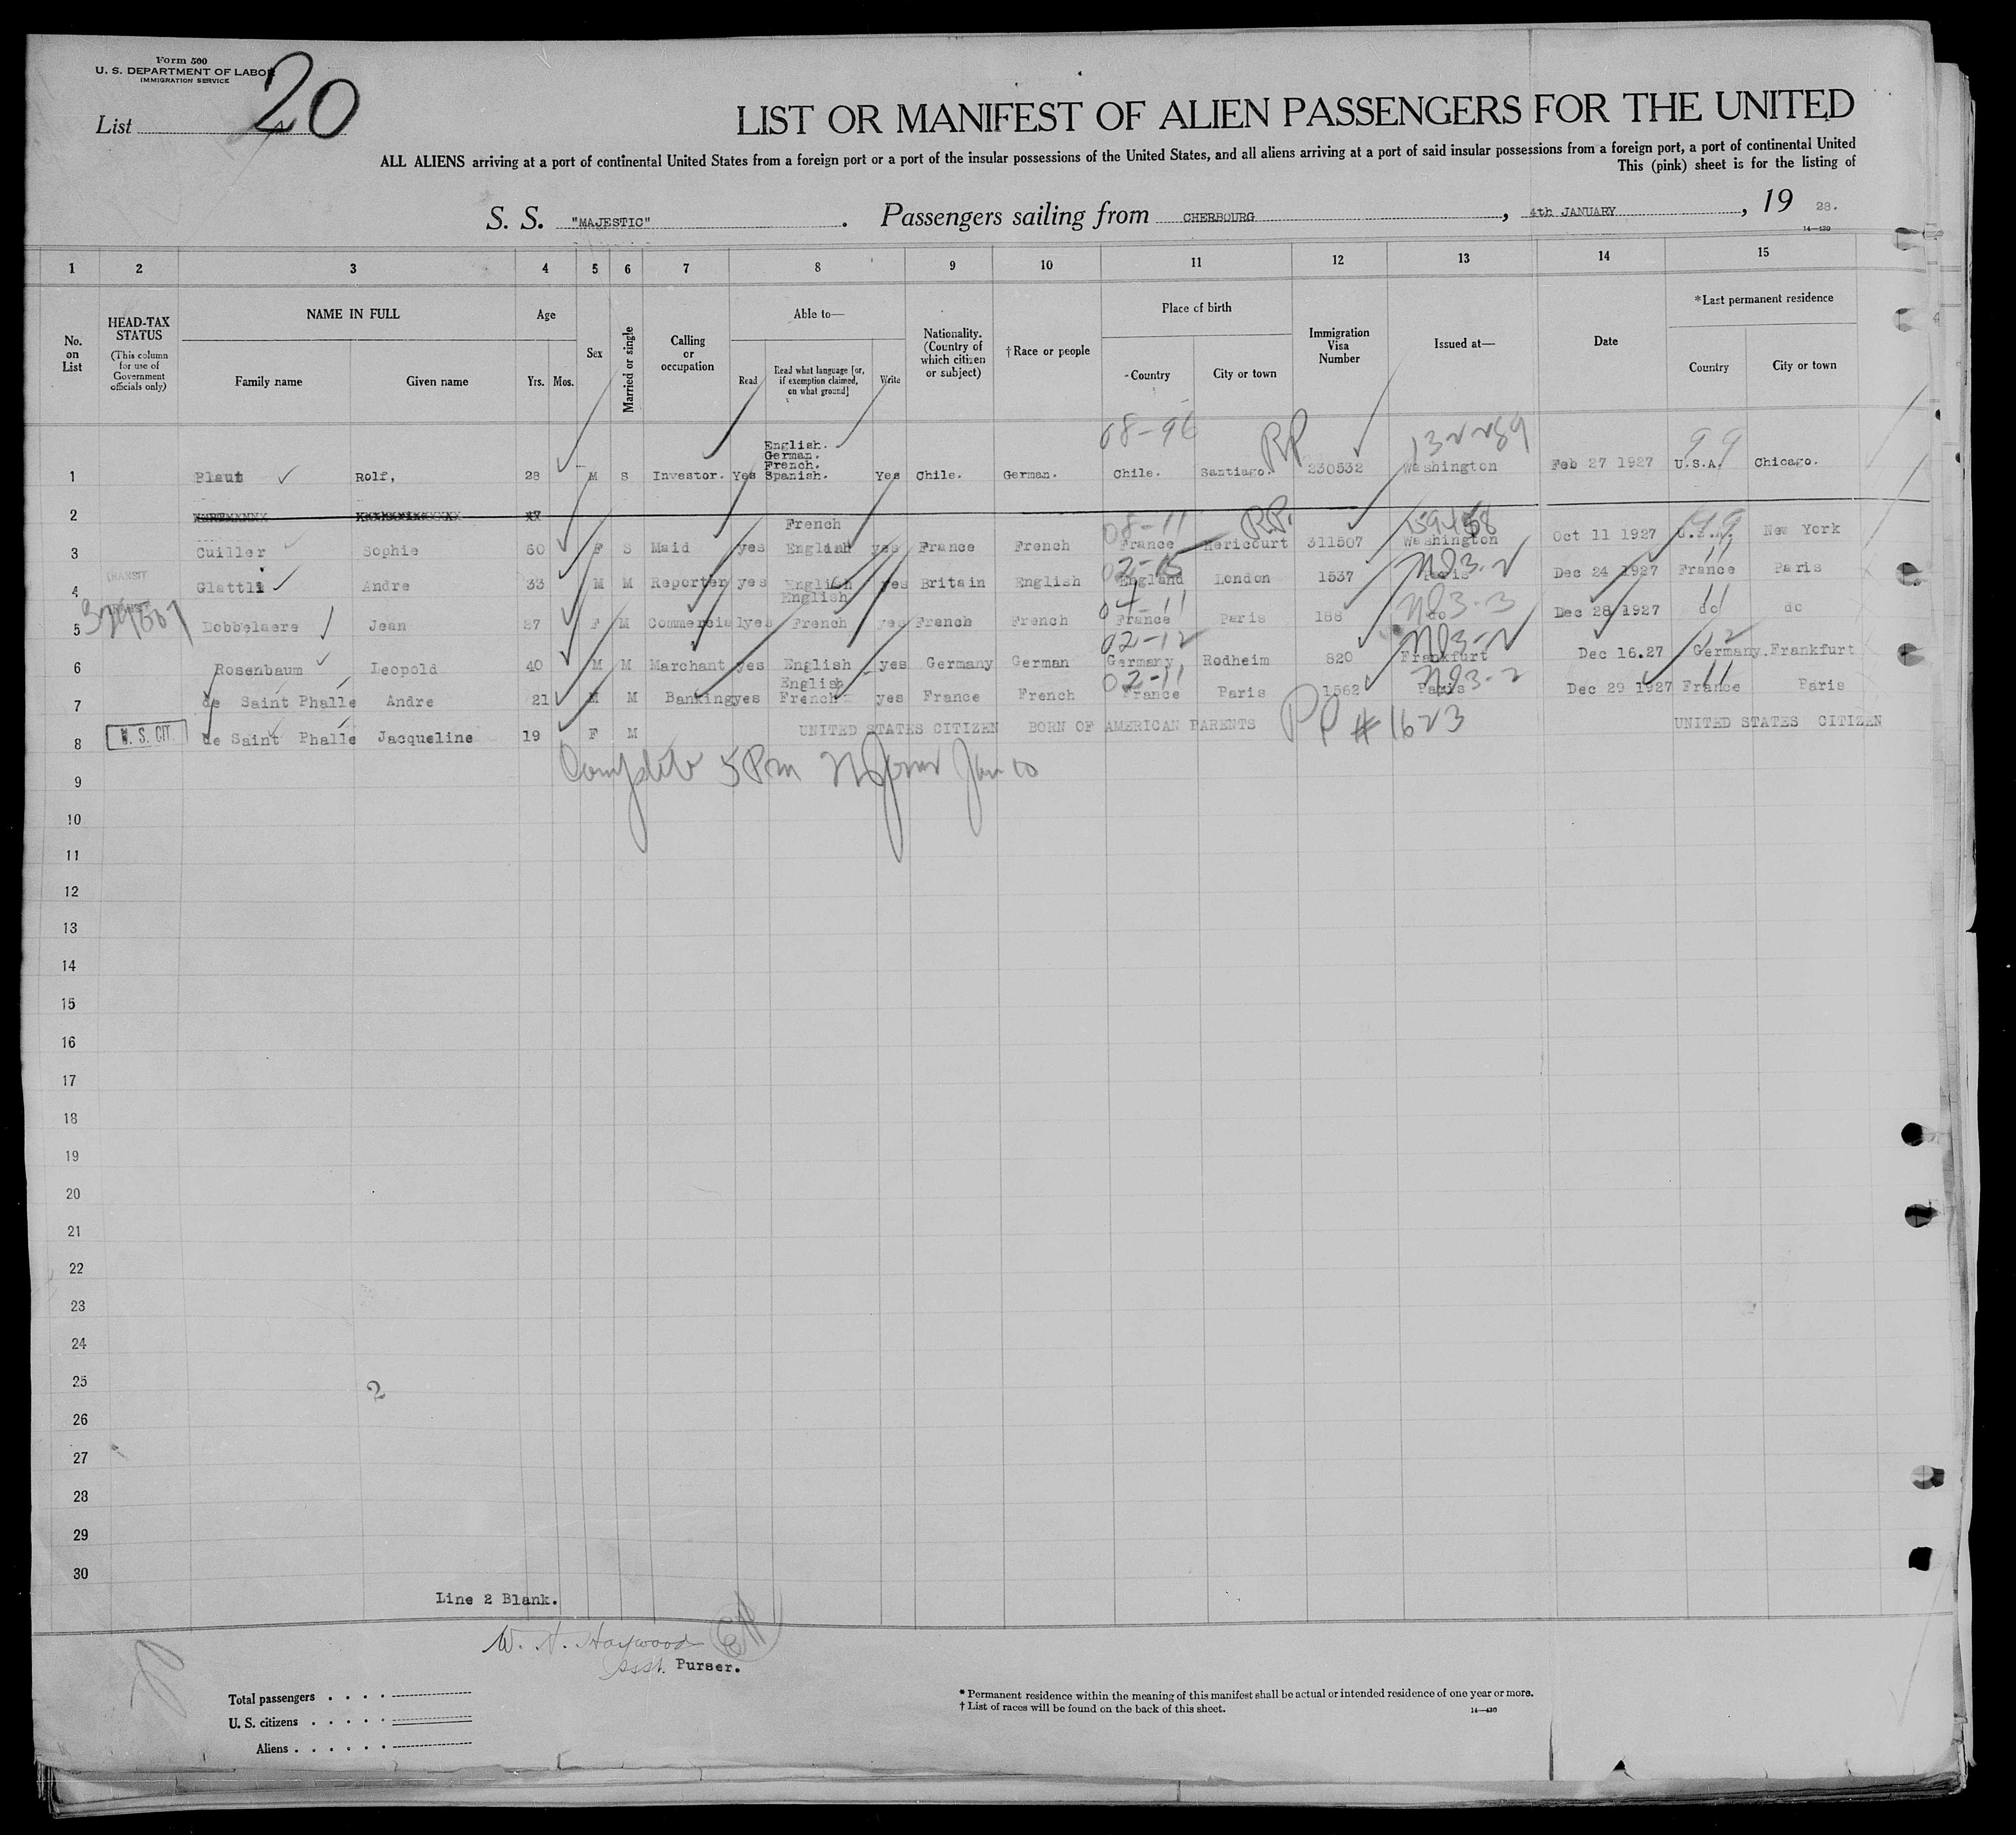 Form 500
U. S. DEPARTMENT OF LABOR
IMMIGRATION SERVICE
List 20
LIST OR MANIFEST OF ALIEN PASSENGERS FOR THE UNITED
ALL ALIENS arriving at a port of continental United States from a foreign port or a port of the insular possessions of the United States, and all aliens arriving at a port of said insular possessions from a foreign port, a port of continental United
This (pink) sheet is for the listing of
S. S. "MAJESTIC". Passengers sailing from CHERBOURG, 4th JANUARY, 19 28.
14—430
1 2 3 4 5 6 7 8 9 10 11 12 13 14 15
No. on List
HEAD-TAX STATUS
(This column for use of Government officials only)
NAME IN FULL
Family name Given name
Age
Yrs. Mos.
Sex
Married or single
Calling or occupation
Able to—
Read
Read what language [or, if exemption claimed, on what ground]
Write
Nationality. (Country of which citizen or subject)
†Race or people
Place of birth
Country City or town
Immigration Visa Number
Issued at—
Date
*Last permanent residence
Country City or town
08-96 RP 132289 99
English.
German.
French.
1 Blaut Rolf, 28 M S Investor. Yes Spanish. Yes Chile. German. Chile. Santiago. 230532 Washington Feb 27 1927 U.S.A. Chicago.
2
French 08-11 RP. 99
3 Cuiller Sophie 60 F S Maid yes English yes France French France Hericourt 311507 Washington Oct 11 1927 U.S.A. New York
TRANSIT 02-15 ND3-2 11
4 Glattli Andre 33 M M Reporter yes English yes Britain English England London 1537 Paris Dec 24 1927 France Paris
TRANSIT English 04-11 ND3-3 11
5 Dobbelaere Jean 27 F M Commercial yes French yes French French France Paris 188 do Dec 28 1927 do do
02-12 ND3-2 12
6 Rosenbaum Leopold 40 M M Marchant yes English yes Germany German Germany Rodheim 820 Frankfurt Dec 16.27 Germany. Frankfurt
English 02-11 ND3-2 11
7 de Saint Phalle Andre 21 M M Banking yes French yes France French France Paris 1562 Paris Dec 29 1927 France Paris
8 U. S. CIT. de Saint Phalle Jacqueline 19 F M UNITED STATES CITIZEN BORN OF AMERICAN PARENTS PP #1623 UNITED STATES CITIZEN
9 Complete 5 Pm Jan 10
10
11
12
13
14
15
16
17
18
19
20
21
22
23
24
25 2
26
27
28
29
30
Line 2 Blank.
W. H. Haywood
Asst. Purser.
Total passengers
U. S. citizens
Aliens
* Permanent residence within the meaning of this manifest shall be actual or intended residence of one year or more.
† List of races will be found on the back of this sheet. 14—430